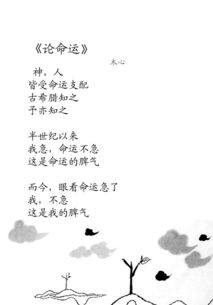 《论命运》
木心
神，人
皆受命运支配
古希腊知之
予亦知之
半世纪以来
我急，命运不急
这是命运的脾气
而今，眼看命运急了
我，不急
这是我的脾气